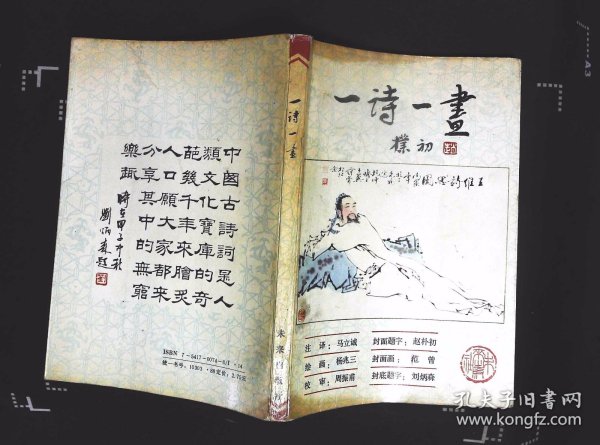 中國古詩詞是人
類文化寶庫的奇
葩幾千年來膾炙
人口願大家都來
分享其中的無窮
樂趣
時在甲子中秋
劉炳森題
ISBN 7-5417-0074-0/I·14
统一书号：10303·68定价：2.75元
一诗一畫
未来出版社
一诗一畫
樸初
王維詩思圖
注译：马立诚 封面题字：赵朴初
绘画：杨兆三 封面画：范曾
校审：周振甫 封底题字：刘炳森
A3
孔夫子旧书网
kongfz.com